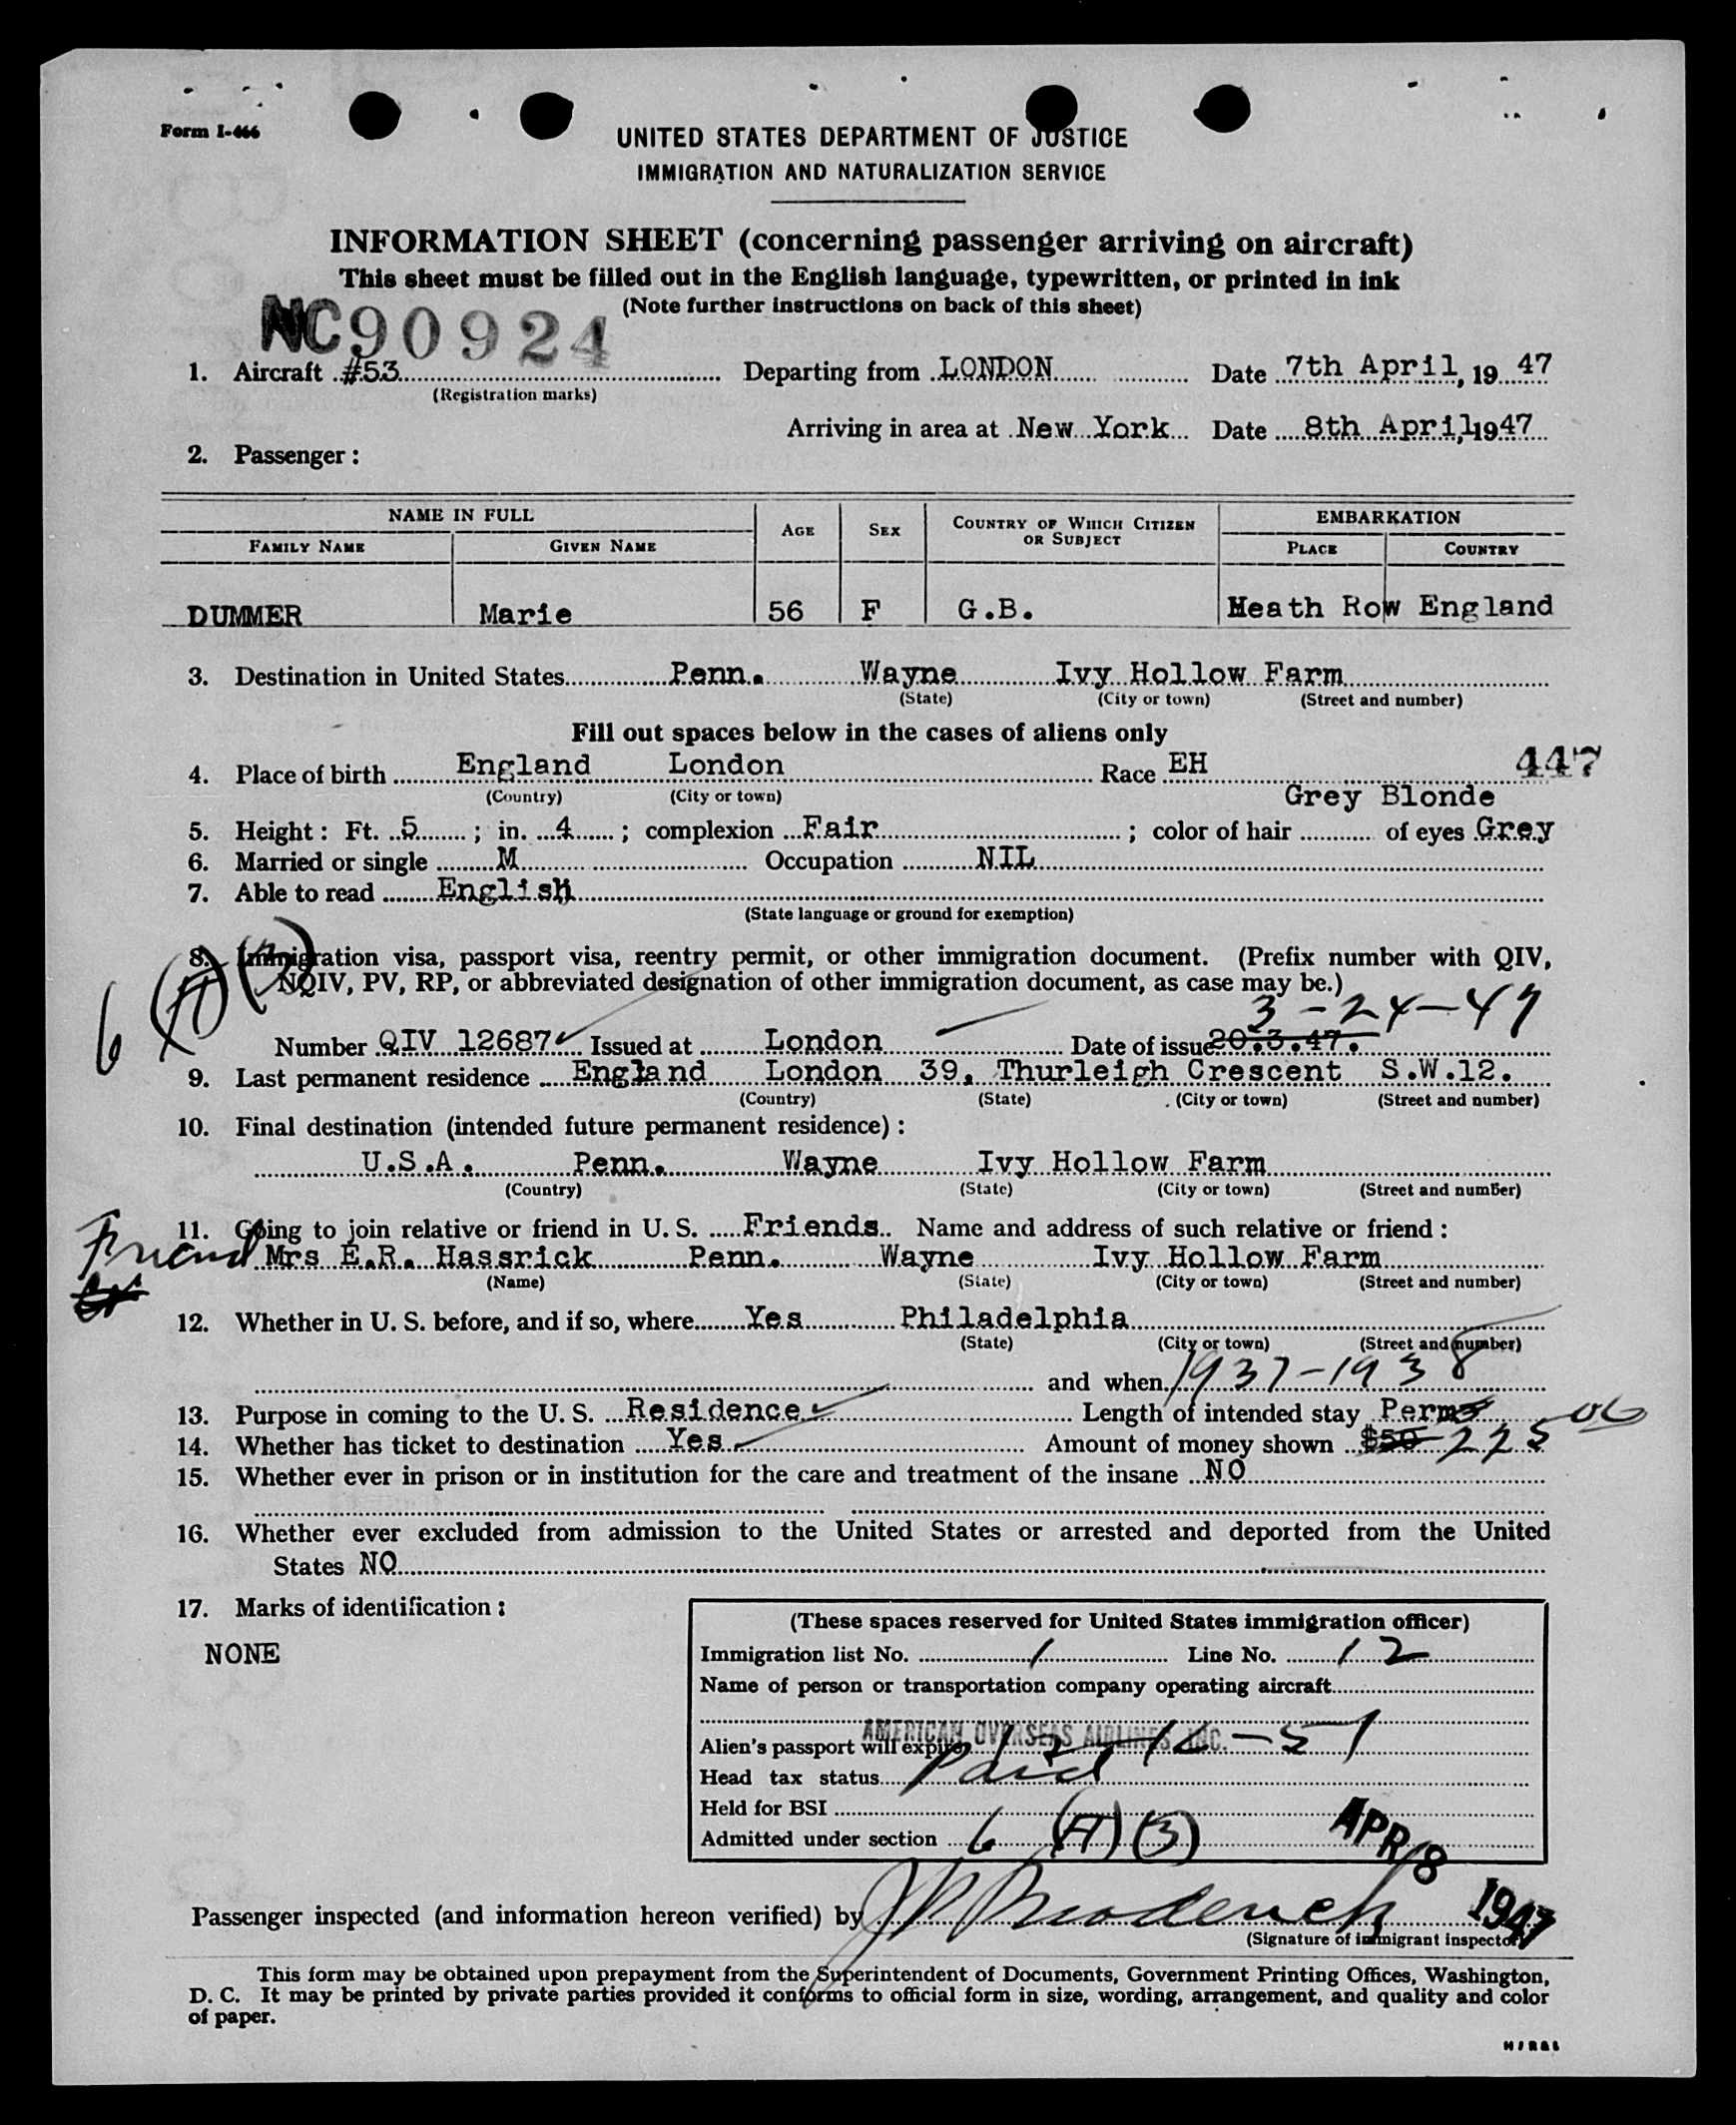 Form I-466
UNITED STATES DEPARTMENT OF JUSTICE
IMMIGRATION AND NATURALIZATION SERVICE
INFORMATION SHEET (concerning passenger arriving on aircraft)
This sheet must be filled out in the English language, typewritten, or printed in ink
(Note further instructions on back of this sheet)
NC90924
1. Aircraft #53 Departing from LONDON Date 7th April, 1947
(Registration marks)
Arriving in area at New York Date 8th April, 1947
2. Passenger:
NAME IN FULL AGE SEX COUNTRY OF WHICH CITIZEN OR SUBJECT EMBARKATION
FAMILY NAME GIVEN NAME PLACE COUNTRY
DUMMER Marie 56 F G.B. Heath Row England
3. Destination in United States Penn. Wayne Ivy Hollow Farm
(State) (City or town) (Street and number)
Fill out spaces below in the cases of aliens only
4. Place of birth England London Race EH 447
(Country) (City or town) Grey Blonde
5. Height: Ft. 5; in. 4; complexion Fair; color of hair of eyes Grey
6. Married or single M Occupation NIL
7. Able to read English
(State language or ground for exemption)
8. Immigration visa, passport visa, reentry permit, or other immigration document. (Prefix number with QIV,
6 (A) (3) NQIV, PV, RP, or abbreviated designation of other immigration document, as case may be.)
3-24-47
Number QIV 12687 Issued at London Date of issue 20.3.47.
9. Last permanent residence England London 39, Thurleigh Crescent S.W.12.
(Country) (State) (City or town) (Street and number)
10. Final destination (intended future permanent residence):
U.S.A. Penn. Wayne Ivy Hollow Farm
(Country) (State) (City or town) (Street and number)
11. Going to join relative or friend in U. S. Friends Name and address of such relative or friend:
Friend Mrs E.R. Hassrick Penn. Wayne Ivy Hollow Farm
(Name) (State) (City or town) (Street and number)
12. Whether in U. S. before, and if so, where Yes Philadelphia
(State) (City or town) (Street and number)
and when 1937-1938
13. Purpose in coming to the U. S. Residence Length of intended stay Perm
14. Whether has ticket to destination Yes Amount of money shown $50 225 00
15. Whether ever in prison or in institution for the care and treatment of the insane NO
16. Whether ever excluded from admission to the United States or arrested and deported from the United
States NO
17. Marks of identification:
NONE
(These spaces reserved for United States immigration officer)
Immigration list No. 1 Line No. 12
Name of person or transportation company operating aircraft
AMERICAN OVERSEAS AIRLINES, INC.
Alien's passport will expire
Head tax status Paid
Held for BSI
Admitted under section 6 (A) (3)
APR 8 1947
Passenger inspected (and information hereon verified) by J P Broderick
(Signature of immigrant inspector)
This form may be obtained upon prepayment from the Superintendent of Documents, Government Printing Offices, Washington,
D. C. It may be printed by private parties provided it conforms to official form in size, wording, arrangement, and quality and color
of paper.